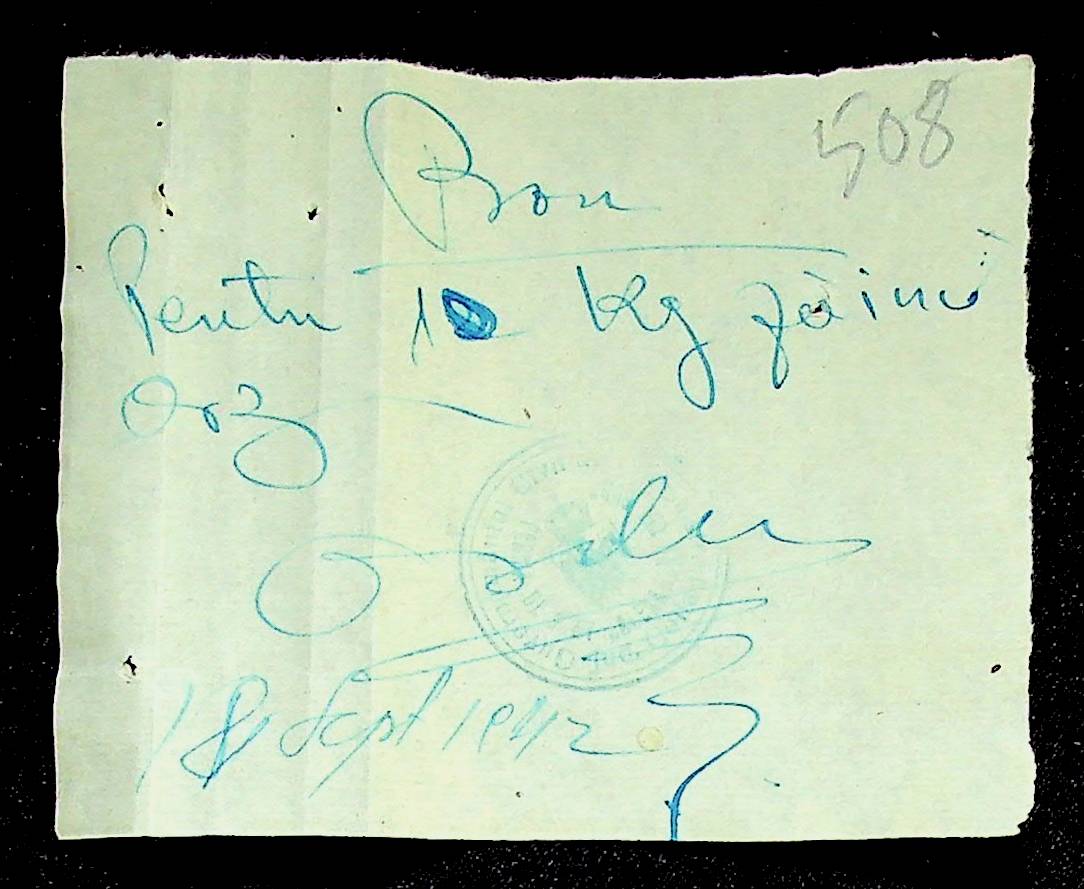 508
Bon
Pentru 10 Kg făină
Orz
18 Sept 1942